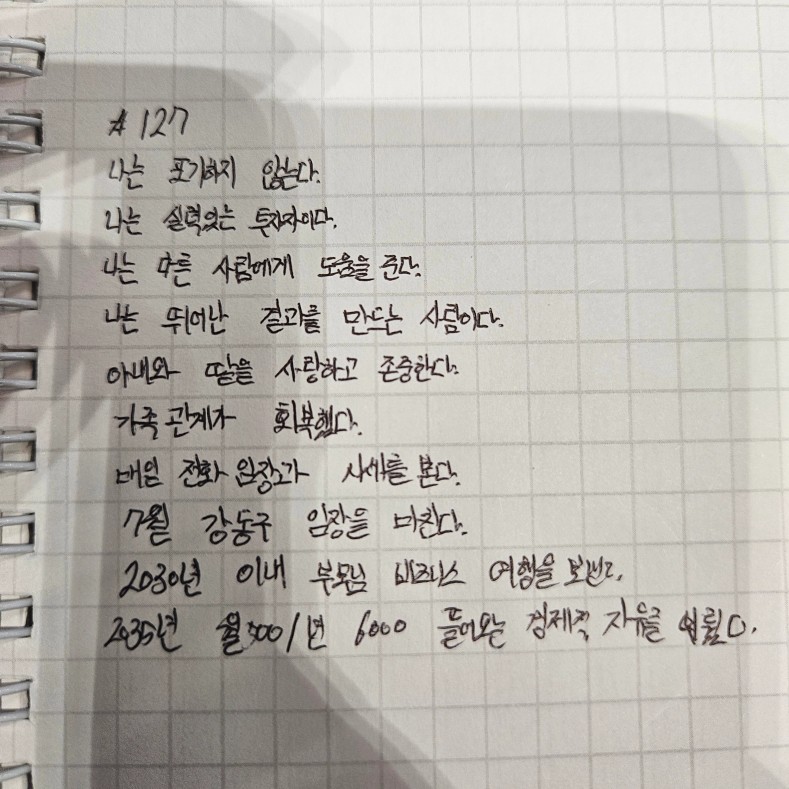 # 127
나는 포기하지 않는다.
나는 실력있는 투자자이다.
나는 다른 사람에게 도움을 준다.
나는 뛰어난 결과를 만드는 사람이다.
아내와 딸을 사랑하고 존중한다.
가족관계가 회복했다.
매일 전화 임장과 시세를 본다.
7월 강동구 임장을 마친다.
2030년 이내 부모님 비즈니스 여행을 보낸다.
2035년 월500/년 6000 들어오는 경제적 자유를 이룬다.